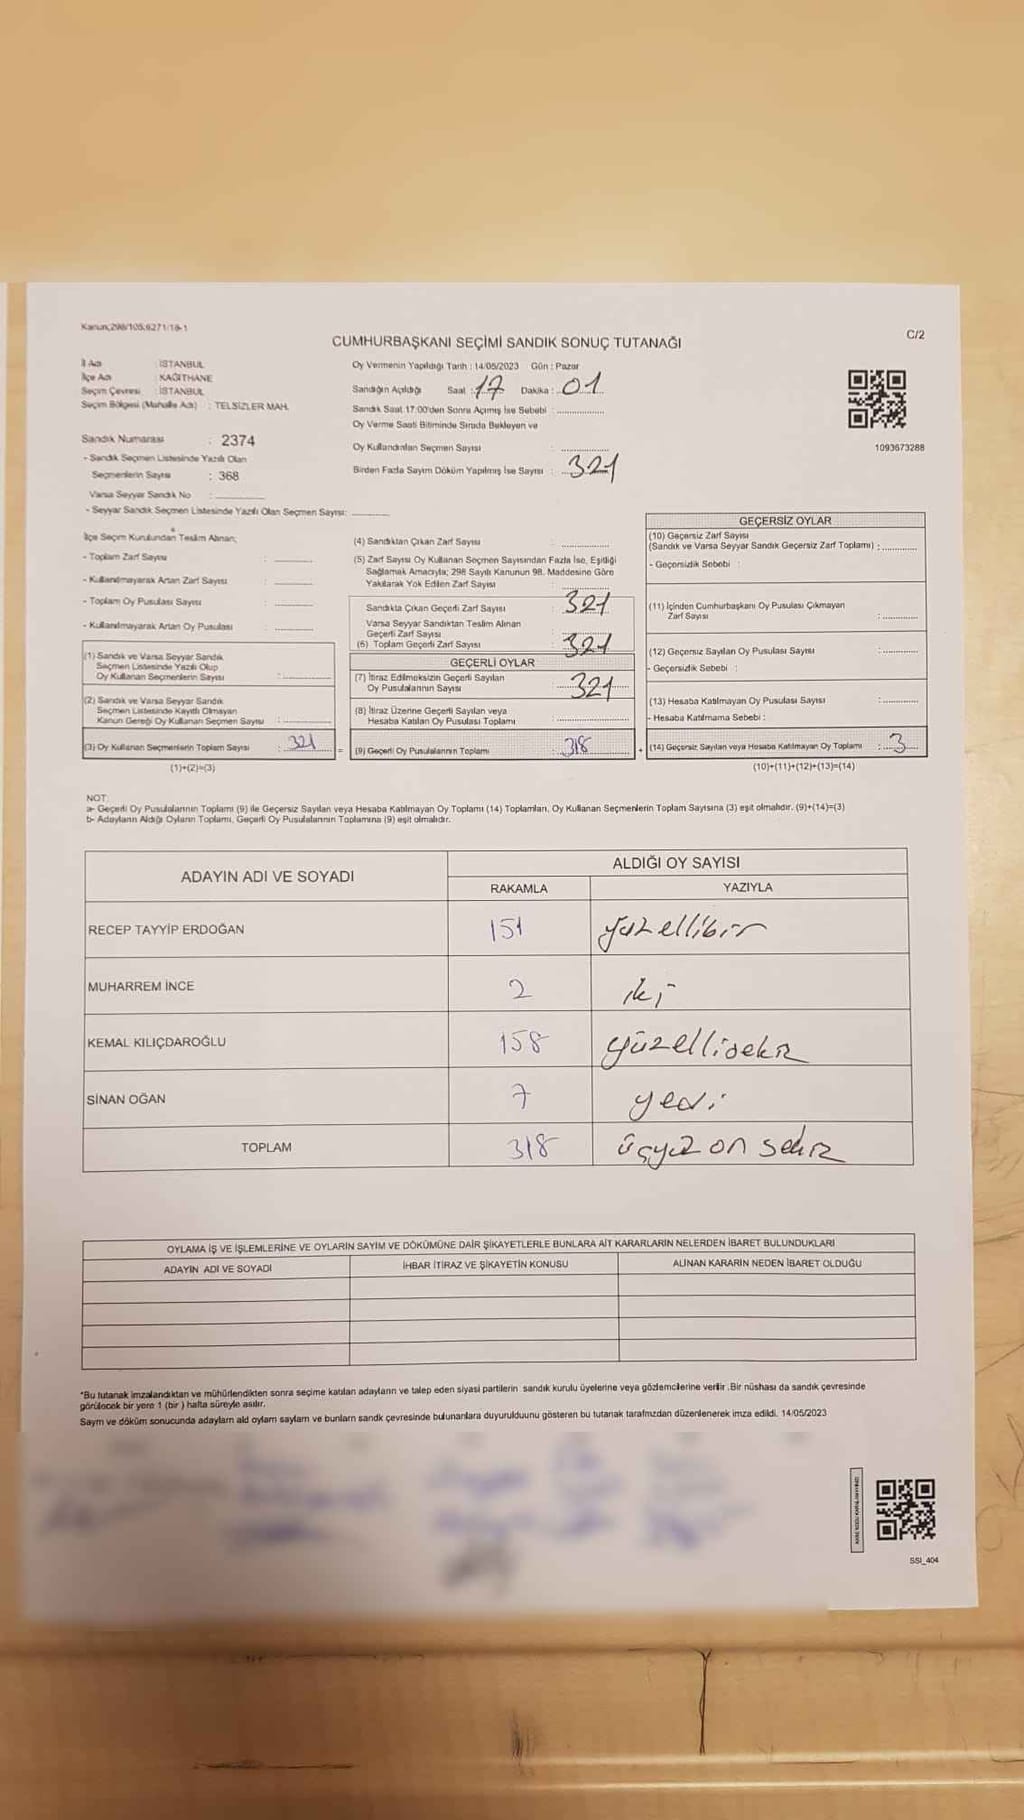 Kanun;298/105;6271/18-1
C/2
CUMHURBAŞKANI SEÇİMİ SANDIK SONUÇ TUTANAĞI
İl Adı : İSTANBUL
İlçe Adı : KAĞITHANE
Seçim Çevresi : İSTANBUL
Seçim Bölgesi (Mahalle Adı) : TELSİZLER MAH.
Sandık Numarası : 2374
- Sandık Seçmen Listesinde Yazılı Olan
Seçmenlerin Sayısı : 368
Varsa Seyyar Sandık No :
- Seyyar Sandık Seçmen Listesinde Yazılı Olan Seçmen Sayısı:
Oy Vermenin Yapıldığı Tarih : 14/05/2023 Gün : Pazar
Sandığın Açıldığı Saat : 17 Dakika : 01
Sandık Saat 17:00'den Sonra Açımış İse Sebebi :
Oy Verme Saati Bitiminde Sırada Bekleyen ve
Oy Kullandırılan Seçmen Sayısı :
Birden Fazla Sayım Döküm Yapılmış İse Sayısı : 321
1093673288
İlçe Seçim Kurulundan Teslim Alınan;
- Toplam Zarf Sayısı :
- Kullanılmayarak Artan Zarf Sayısı :
- Toplam Oy Pusulası Sayısı :
- Kullanılmayarak Artan Oy Pusulası :
(1) Sandık ve Varsa Seyyar Sandık
Seçmen Listesinde Yazılı Olup
Oy Kullanan Seçmenlerin Sayısı :
(2) Sandık ve Varsa Seyyar Sandık
Seçmen Listesinde Kayıtlı Olmayan
Kanun Gereği Oy Kullanan Seçmen Sayısı :
(3) Oy Kullanan Seçmenlerin Toplam Sayısı : 321 =
(1)+(2)=(3)
(4) Sandıktan Çıkan Zarf Sayısı :
(5) Zarf Sayısı Oy Kullanan Seçmen Sayısından Fazla İse, Eşitliği
Sağlamak Amacıyla; 298 Sayılı Kanunun 98. Maddesine Göre
Yakılarak Yok Edilen Zarf Sayısı :
Sandıkta Çıkan Geçerli Zarf Sayısı : 321
Varsa Seyyar Sandıktan Teslim Alınan
Geçerli Zarf Sayısı :
(6) Toplam Geçerli Zarf Sayısı : 321
GEÇERLİ OYLAR
(7) İtiraz Edilmeksizin Geçerli Sayılan
Oy Pusulalarının Sayısı : 321
(8) İtiraz Üzerine Geçerli Sayılan veya
Hesaba Katılan Oy Pusulası Toplamı :
(9) Geçerli Oy Pusulalarının Toplamı : 318 +
GEÇERSİZ OYLAR
(10) Geçersiz Zarf Sayısı
(Sandık ve Varsa Seyyar Sandık Geçersiz Zarf Toplamı) :
- Geçersizlik Sebebi :
(11) İçinden Cumhurbaşkanı Oy Pusulası Çıkmayan
Zarf Sayısı :
(12) Geçersiz Sayılan Oy Pusulası Sayısı :
- Geçersizlik Sebebi :
(13) Hesaba Katılmayan Oy Pusulası Sayısı :
- Hesaba Katılmama Sebebi :
(14) Geçersiz Sayılan veya Hesaba Katılmayan Oy Toplamı : 3
(10)+(11)+(12)+(13)=(14)
NOT:
a- Geçerli Oy Pusulalarının Toplamı (9) ile Geçersiz Sayılan veya Hesaba Katılmayan Oy Toplamı (14) Toplamları, Oy Kullanan Seçmenlerin Toplam Sayısına (3) eşit olmalıdır. (9)+(14)=(3)
b- Adayların Aldığı Oyların Toplamı, Geçerli Oy Pusulalarının Toplamına (9) eşit olmalıdır.
ADAYIN ADI VE SOYADI
ALDIĞI OY SAYISI
RAKAMLA YAZIYLA
RECEP TAYYİP ERDOĞAN 151 yüzellibir
MUHARREM İNCE 2 iki
KEMAL KILIÇDAROĞLU 158 yüzellisekiz
SİNAN OĞAN 7 yedi
TOPLAM 318 üçyüz on sekiz
OYLAMA İŞ VE İŞLEMLERİNE VE OYLARIN SAYIM VE DÖKÜMÜNE DAİR ŞİKAYETLERLE BUNLARA AİT KARARLARIN NELERDEN İBARET BULUNDUKLARI
ADAYIN ADI VE SOYADI İHBAR İTİRAZ VE ŞİKAYETİN KONUSU ALINAN KARARIN NEDEN İBARET OLDUĞU
*Bu tutanak imzalandıktan ve mühürlendikten sonra seçime katılan adayların ve talep eden siyasi partilerin sandık kurulu üyelerine veya gözlemcilerine verilir .Bir nüshası da sandık çevresinde
görülecek bir yere 1 (bir ) hafta süreyle asılır.
Sayım ve döküm sonucunda adayların ald oyların sayları ve bunların sandk çevresinde bulunanlara duyurulduunu gösteren bu tutanak tarafmzdan düzenlenerek imza edildi. 14/05/2023
SSI_404